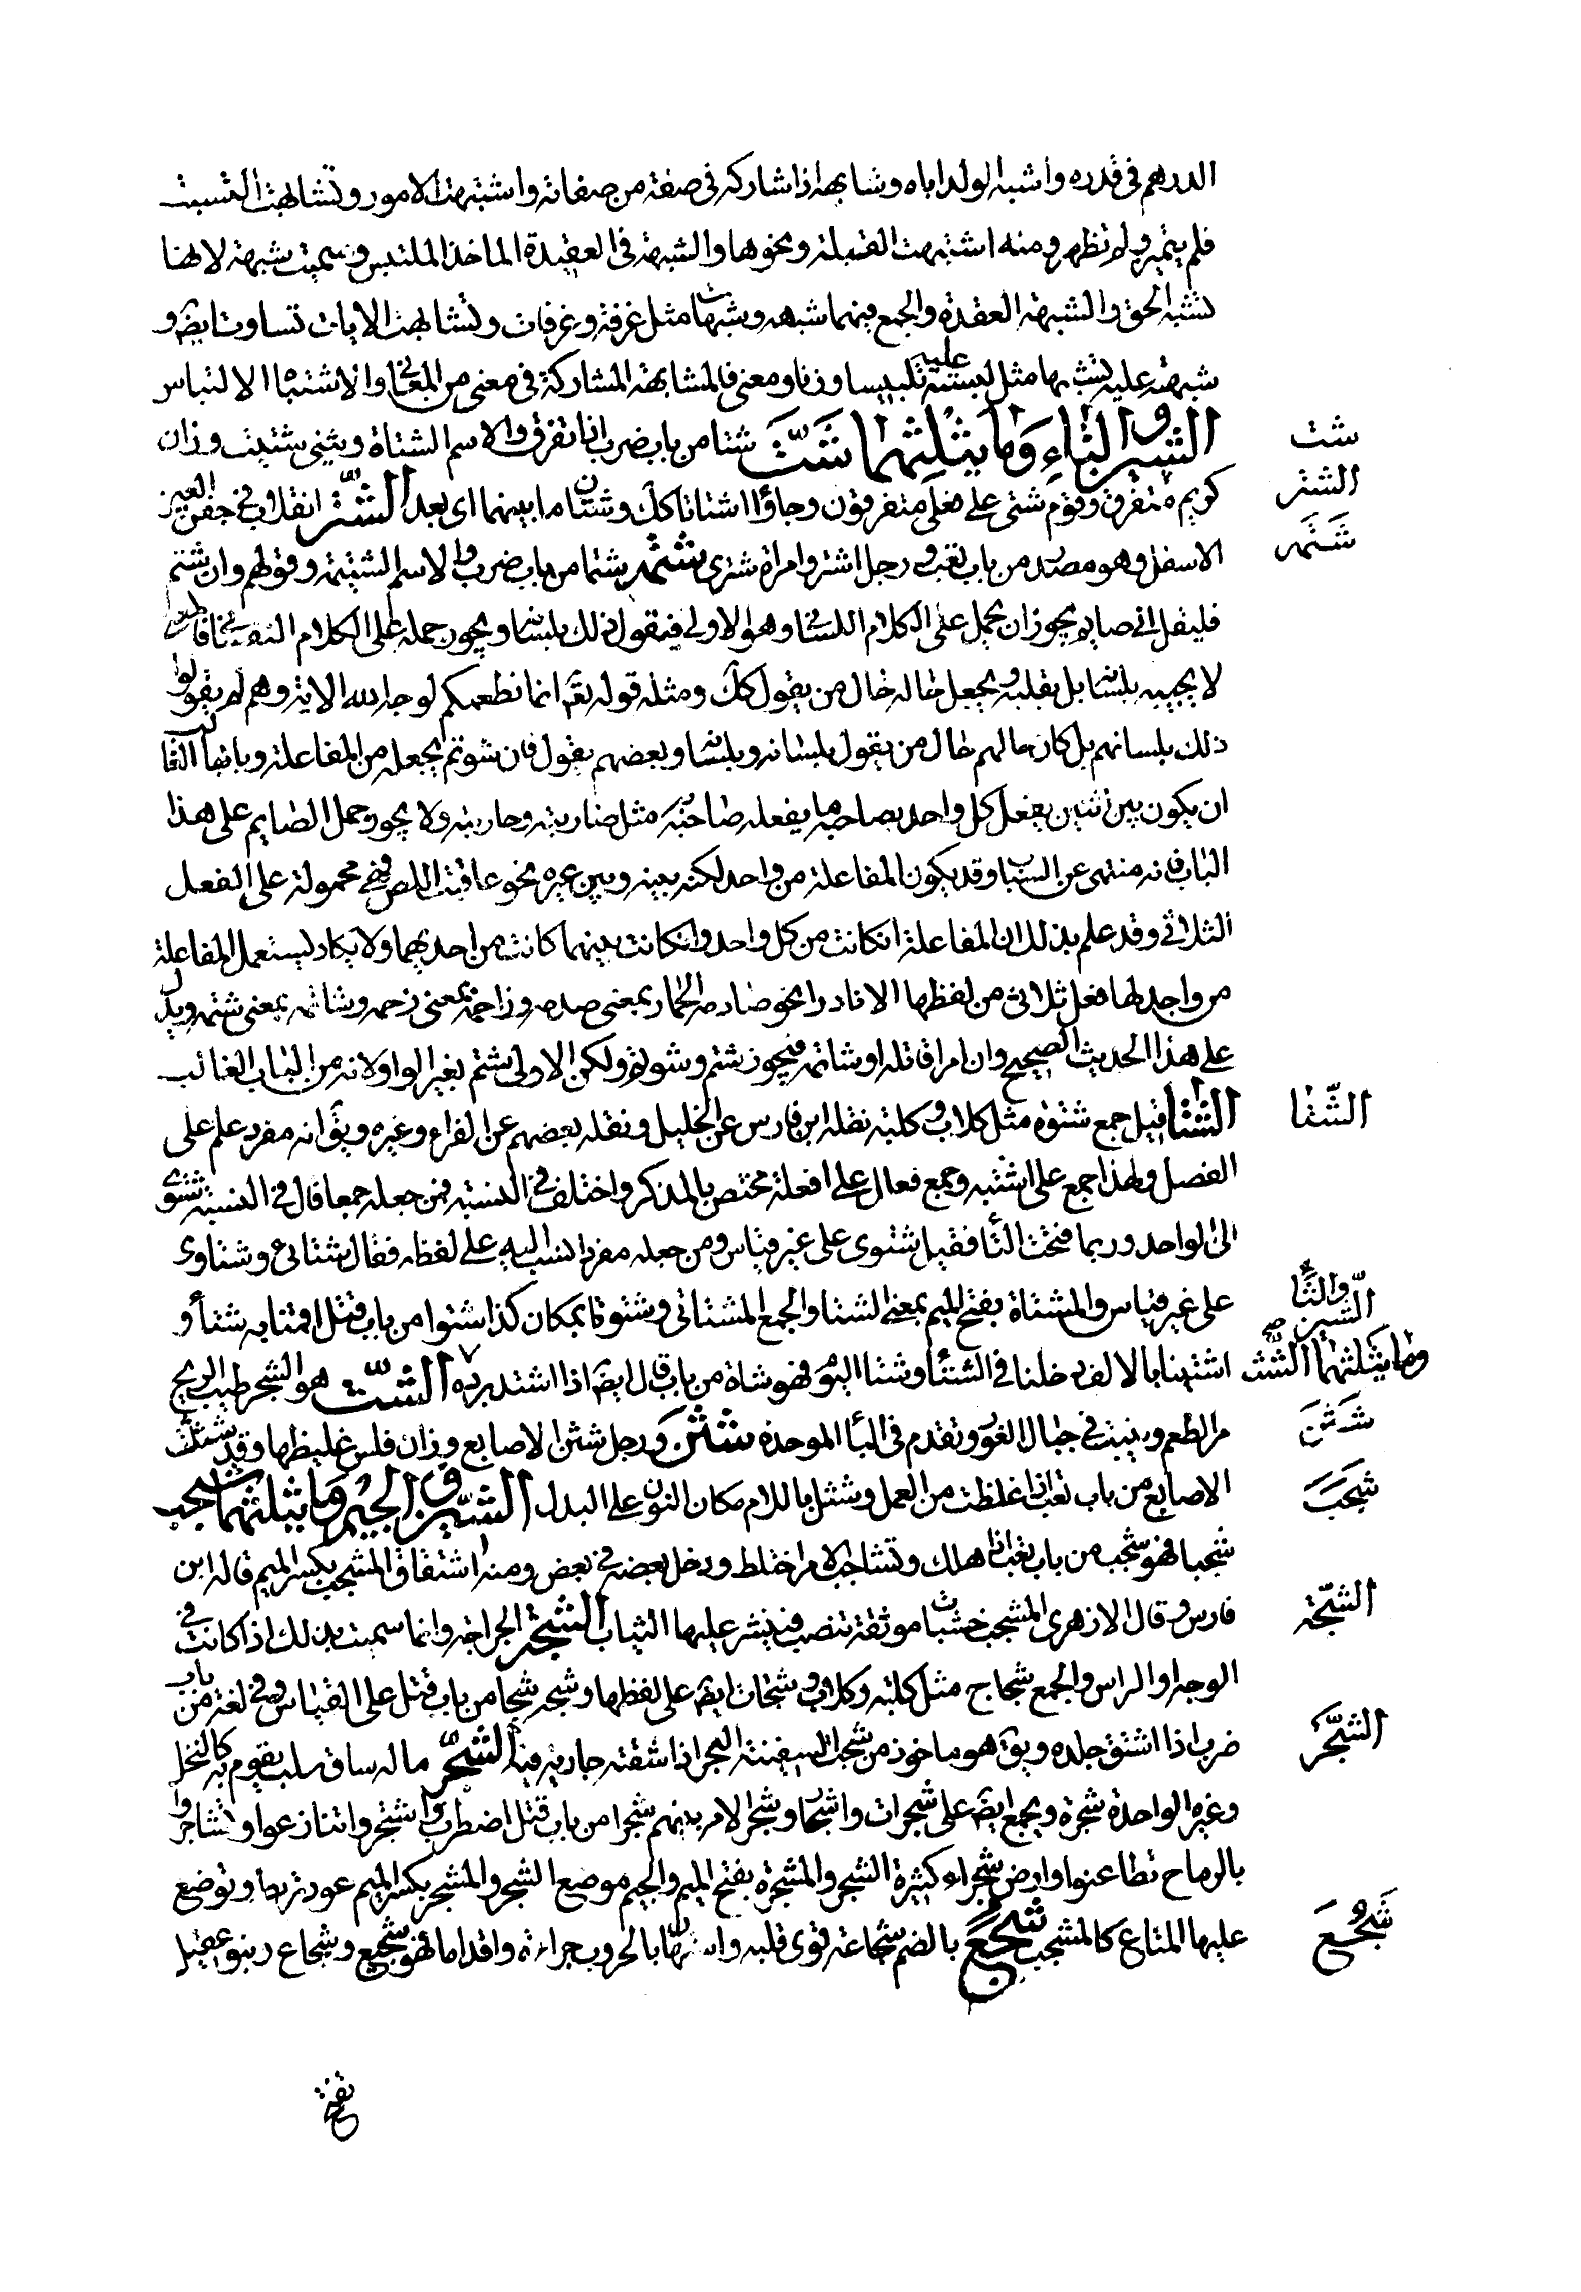 الدرهم فى قدره واشبه الولد اباه وشابهه اذا شاركه فى صفة من صفاته واشتبهت الامور وتشابهت التبست
فلم يتميز ولم تظهر ومنه اشتبهت القبلة ونحوها والشبهة فى العقيدة الماخذ الملتبس وسميت شبهة لانها
تشبه الحق والشبهة العقدة والجمع فيهما شبه وشبهات مثل غرفة وغرفات وتشابهت الايات تساوت ايضا و
شبهته عليه تشبيها مثل لبسته عليه تلبيسا وزنا ومعنى فالمشابهة المشاركة فى معنى من المعانى والاشتباه الالتباس
الشين والتاء وما يثلثهما شتّ شتا من باب ضرب اذا تفرق والاسم الشتات وشيئ شتيت وزان
كريم متفرق وقوم شتى على فعلى متفرقون وجاؤا اشتاتا كك وشتان ما بينهما اى بعد الشتر انقلاب فى جفن العين
الاسفل وهو مصدر من باب تعب ورجل اشتر وامراة شترى شتمه شتما من باب ضرب والاسم الشتيمة وقولهم وان شتم
فليقل انى صايم يجوز ان يحمل على الكلام اللسانى وهو الاولى فيقول ذلك بلسانه ويجوز حمله على الكلام النفسانى
لا يجيبه بلسانه بل بقلبه ويجعل حاله حال من يقول كك ومثله قوله تعالى انما نطعمكم لوجه الله الاية وهم لم يقولوا
ذلك بلسانهم بل كان حالهم حال من يقول بلسانه وبعضهم يقول فان شوتم يجعله من المفاعلة وبابها الغالب
ان يكون بين اثنين يفعل كل واحد بصاحبه ما يفعله صاحبه به مثل ضاربته وحاربته ولا يجوز حمل الصايم على هذا
الباب فانه منتهى عن السباب وقد يكون المفاعلة من واحد لكنه بينه وبين غيره نحو عاقبت اللص فهى محمولة على الفعل
الثلاثى وقد علم بذلك ان المفاعلة ان كانت من كل واحد وان كانت بينهما كانت من احدهما ولا يكاد يستعمل المفاعلة
من واحد لها فعل ثلاثى من لفظها الا نادرا نحو صادمه الحمار بمعنى صدمه وزاحمه بمعنى زحمه وشاتمه بمعنى شتمه ويدل
على هذا الحديث الصحيح وان امرأ قاتله او شاتمه فيجوز شتم وشوتم ولكن الاولى شتم بغير الواو لانه من الباب الغالب
الشتا قيل جمع شتوة مثل كلاب وكلبة نقله ابن فارس عن الخليل ونقله بعضهم عن الفراء وغيره ويق انه مفرد علم على
الفصل ولهذا جمع على اشتيه وجمع فعال على افعلة مختص بالمذكر واختلف فى النسبة فمن جعله جمعا قال فى النسبة شتوى
الى الواحد وربما فتحت التا فقيل شتوى على غير قياس ومن جعله مفردا نسب اليه على لفظه فقال شتائى وشتاوى
على غير قياس والمشتاة بفتح الميم بمعنى الشتا والجمع المشاتى وشتونا بمكان كذا شتوا من باب قتل اقمنا به شتا و
اشتينا بالالف دخلنا فى الشتا وشتا اليوم فهو شات من باب قال ايضا اذا اشتد برده الشث هو الشجر طيب الريح
مر الطعم وينبت فى جبال الغور وتقدم فى البا الموحدة شثن ورجل شثن الاصابع وزان فلس غليظها وقد شثنت
الاصابع من باب تعب اذا غلظت من العمل وشثل باللام مكان النون على البدل الشين والجيم وما يثلثهما شجب
شجبا فهو شجب من باب تعب اذا هلك وتشاجب الامر اختلط ودخل بعضه فى بعض ومنه اشتقاق المشجب بكسر الميم قاله ابن
فارس وقال الازهرى المشجب خشبات موثقة تنصب فينشر عليها الثياب الشجة الجراحة وانما سميت بذلك اذا كانت فى
الوجه او الراس والجمع شجاج مثل كلبة وكلاب وشجات ايضا على لفظها وشجه شجا من باب قتل على القياس وفى لغة من باب
ضرب اذا اشتق جلده ويق هو ماخوذ من شجت السفينة البحر اذا شقته جارية فيه الشجر ما له ساق صلب يقوم به كالنخل
وغيره الواحدة شجرة ويجمع ايضا على شجرات واشجار وشجر الامر بينهم شجرا من باب قتل اضطرب واشتجروا تنازعوا وتشاجروا
بالرماح تطاعنوا وارض شجراء كثيرة الشجر والمشجرة بفتح الميم والجيم موضع الشجر والمشجر بكسر الميم عود تربط وتوضع
عليها المتاع كالمشجب شجع بالضم شجاعة قوى قلبه واستهان بالحروب جراءة واقداما فهو شجيع وشجاع وبنو عقيل
شت
الشتر
شتمه
الشتا
الشين والثا
وما يثلثهما الشث
شثن
شجب
الشجّة
الشجر
شجع
بفتح